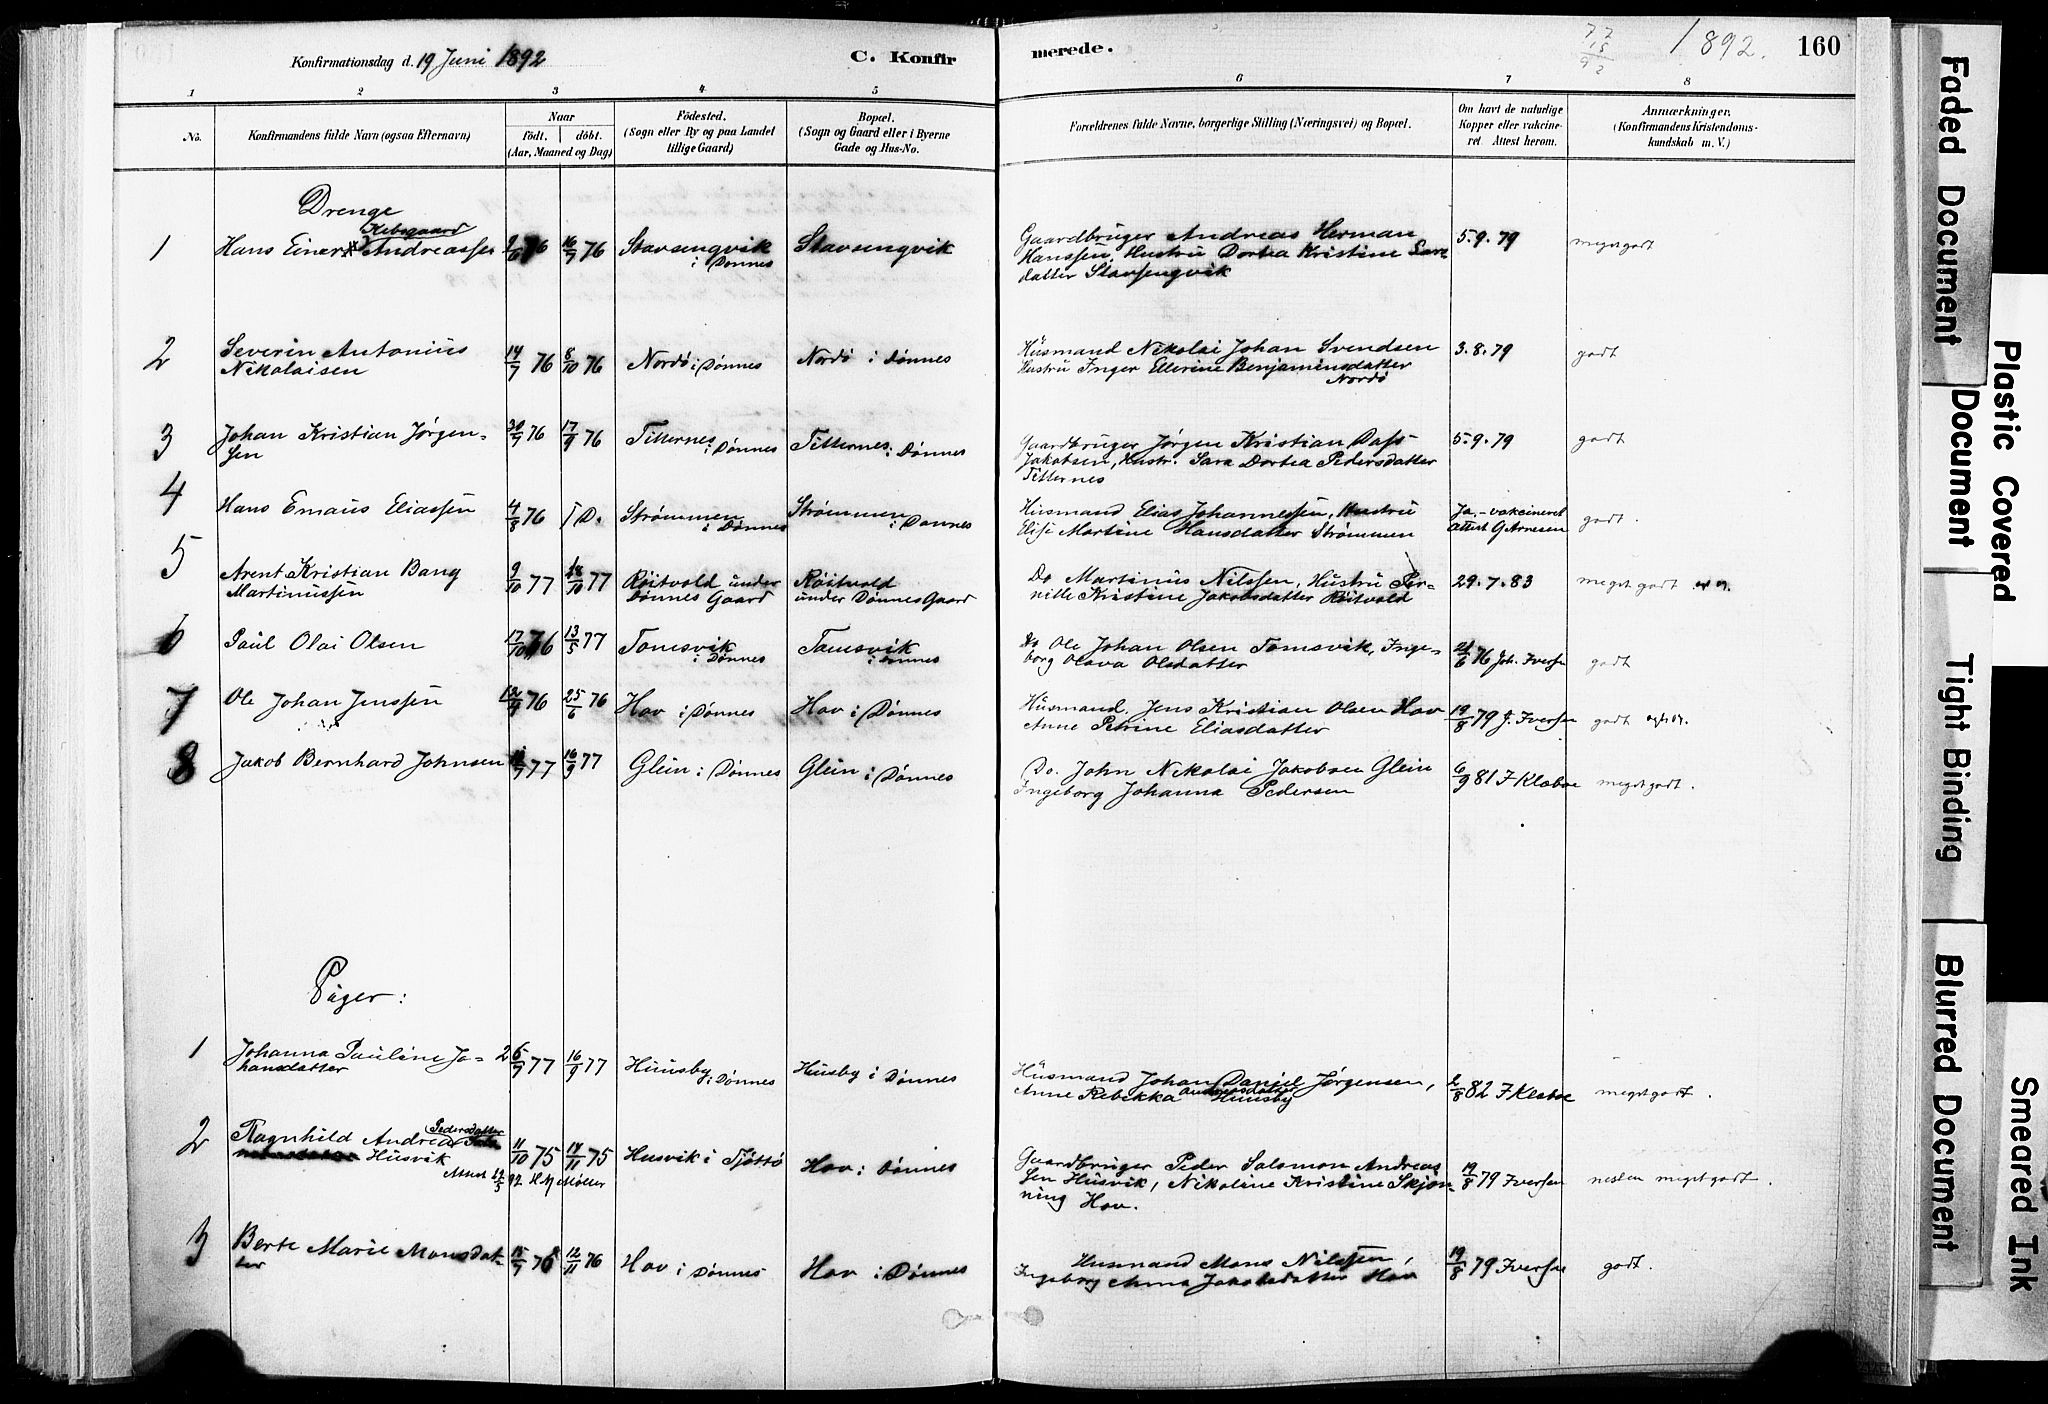 Konfirmationsdag d. 19 Juni 1892
C. Konfir
merede.
77
15
92
1892.
160
1
2
3
4
5
6
7
8
No.
Konfirmandens fulde Navn (ogsaa Efternavn)
Naar
født. døbt.
(Aar, Maaned og Dag)
Fødested.
(Sogn eller By og paa Landet
tillige Gaard)
Bopæl.
(Sogn og Gaard eller i Byerne
Gade og Hus-No.
Forældrenes fulde Navne, borgerlige Stilling (Næringsvei) og Bopæl.
Om havt de naturlige
Kopper eller vakcine-
ret Attest herom.
Anmærkninger.
(Konfirmandens Kristendoms-
kundskab m. V.)
Drenge
1 Hans Einer Andreassen 76 16/7 76 Stavsengvik
i Dønnes
Stavsengvik
Gaardbruger Andreas Herman
Hanssen, Hustru Dortea Kristine
datter Stavsengvik
5.9.79
megetgodt
2 Severin Antonius
Nikolaisen
14/7 76 8/10 76 Nordø i Dønnes Nordø i Dønnes
Husmand Nikolai Johan Svendsen
Hustru Inger Ellerine Benjaminsdatter
Nordø
3.8.79 godt
3 Johan Kristian Jørgen-
sen
30/7 76 17/9 76 Titternes i Dønnes Titternes i Dønnes
Gaardbruger Jørgen Kristian Dass
Jakobsen, Hustr. Sara Dortea Pedersdatter
Titternes
5.9.79 godt
4 Hans Emaus Eliassen 4/8 76 D. Strømmen
i Dønnes
Strømmen
i Dønnes
Husmand Elias Johannessen, Hustru
Elise Martine Hansdatter Strømmen
Ja, - vakcineret
attest G Arnesen
godt.
5 Arent Kristian Bang
Martinussen
9/10 77 /10 77 Røitvold under
Dønnes Gaard
Røitvold
under Dønnes Gaard
Do Martinus Nilssen, Hustru Per-
nille Kristine Jakobsdatter Røitvold
29.7.83 megetgodt
6 Paul Olai Olsen 17/10 76 13/5 77 Tomsvik
i Dønnes
Tomsvik
i Dønnes
Do Ole Johan Olsen Tomsvik, Inge-
borg Olava Olsdatter
76 Joh. Iversen godt
7 Ole Johan Jenssen 76 25/6 76 Hov i Dønnes Hov i Dønnes
Husmand. Jens Kristian Olsen Hov
Anne Petrine Eliasdatter
19/8 79 J. Iversen godt
8 Jakob Bernhard Johnsen 77 16/9 77 Glein i Dønnes Glein i Dønnes
Do. John Nikolai Jakobsen Glein
Ingeborg Johanna Pedersen
6/9 81 F Klæboe megetgodt.
Piger:
1 Johanna Pauline Jo-
hansdatter
26/7 77 16/9 77 Huusby i Dønnes Husby i Dønnes
Husmand Johan Daniel Jørgensen,
Anne Rebekka Andreasdatter Huusby
2/8 82 F Klæboe megetgodt.
2 Ragnhild Andrea Pedersdatter
Husvik
Attest 92 H M Møller
11/10 75 14/11 75 Husvik i Tjøttø Hov i Dønnes
Gaardbruger Peder Salomon Andreas
sen Husvik, Nikoline Kristine Skjøn-
ning Hov.
19/8 79 Iversen nesten megetgodt.
3 Berte Marie Monsdat-
ter
15/7 76 12/11 76 Hov i Dønnes Hov i Dønnes
Husmand Mons Nilssen,
Ingeborg Anna Jakobsdatter Hov
19/8 79 Iversen godt.
Faded Document
Plastic Covered
Document
Tight Binding
Blurred Document
Smeared Ink